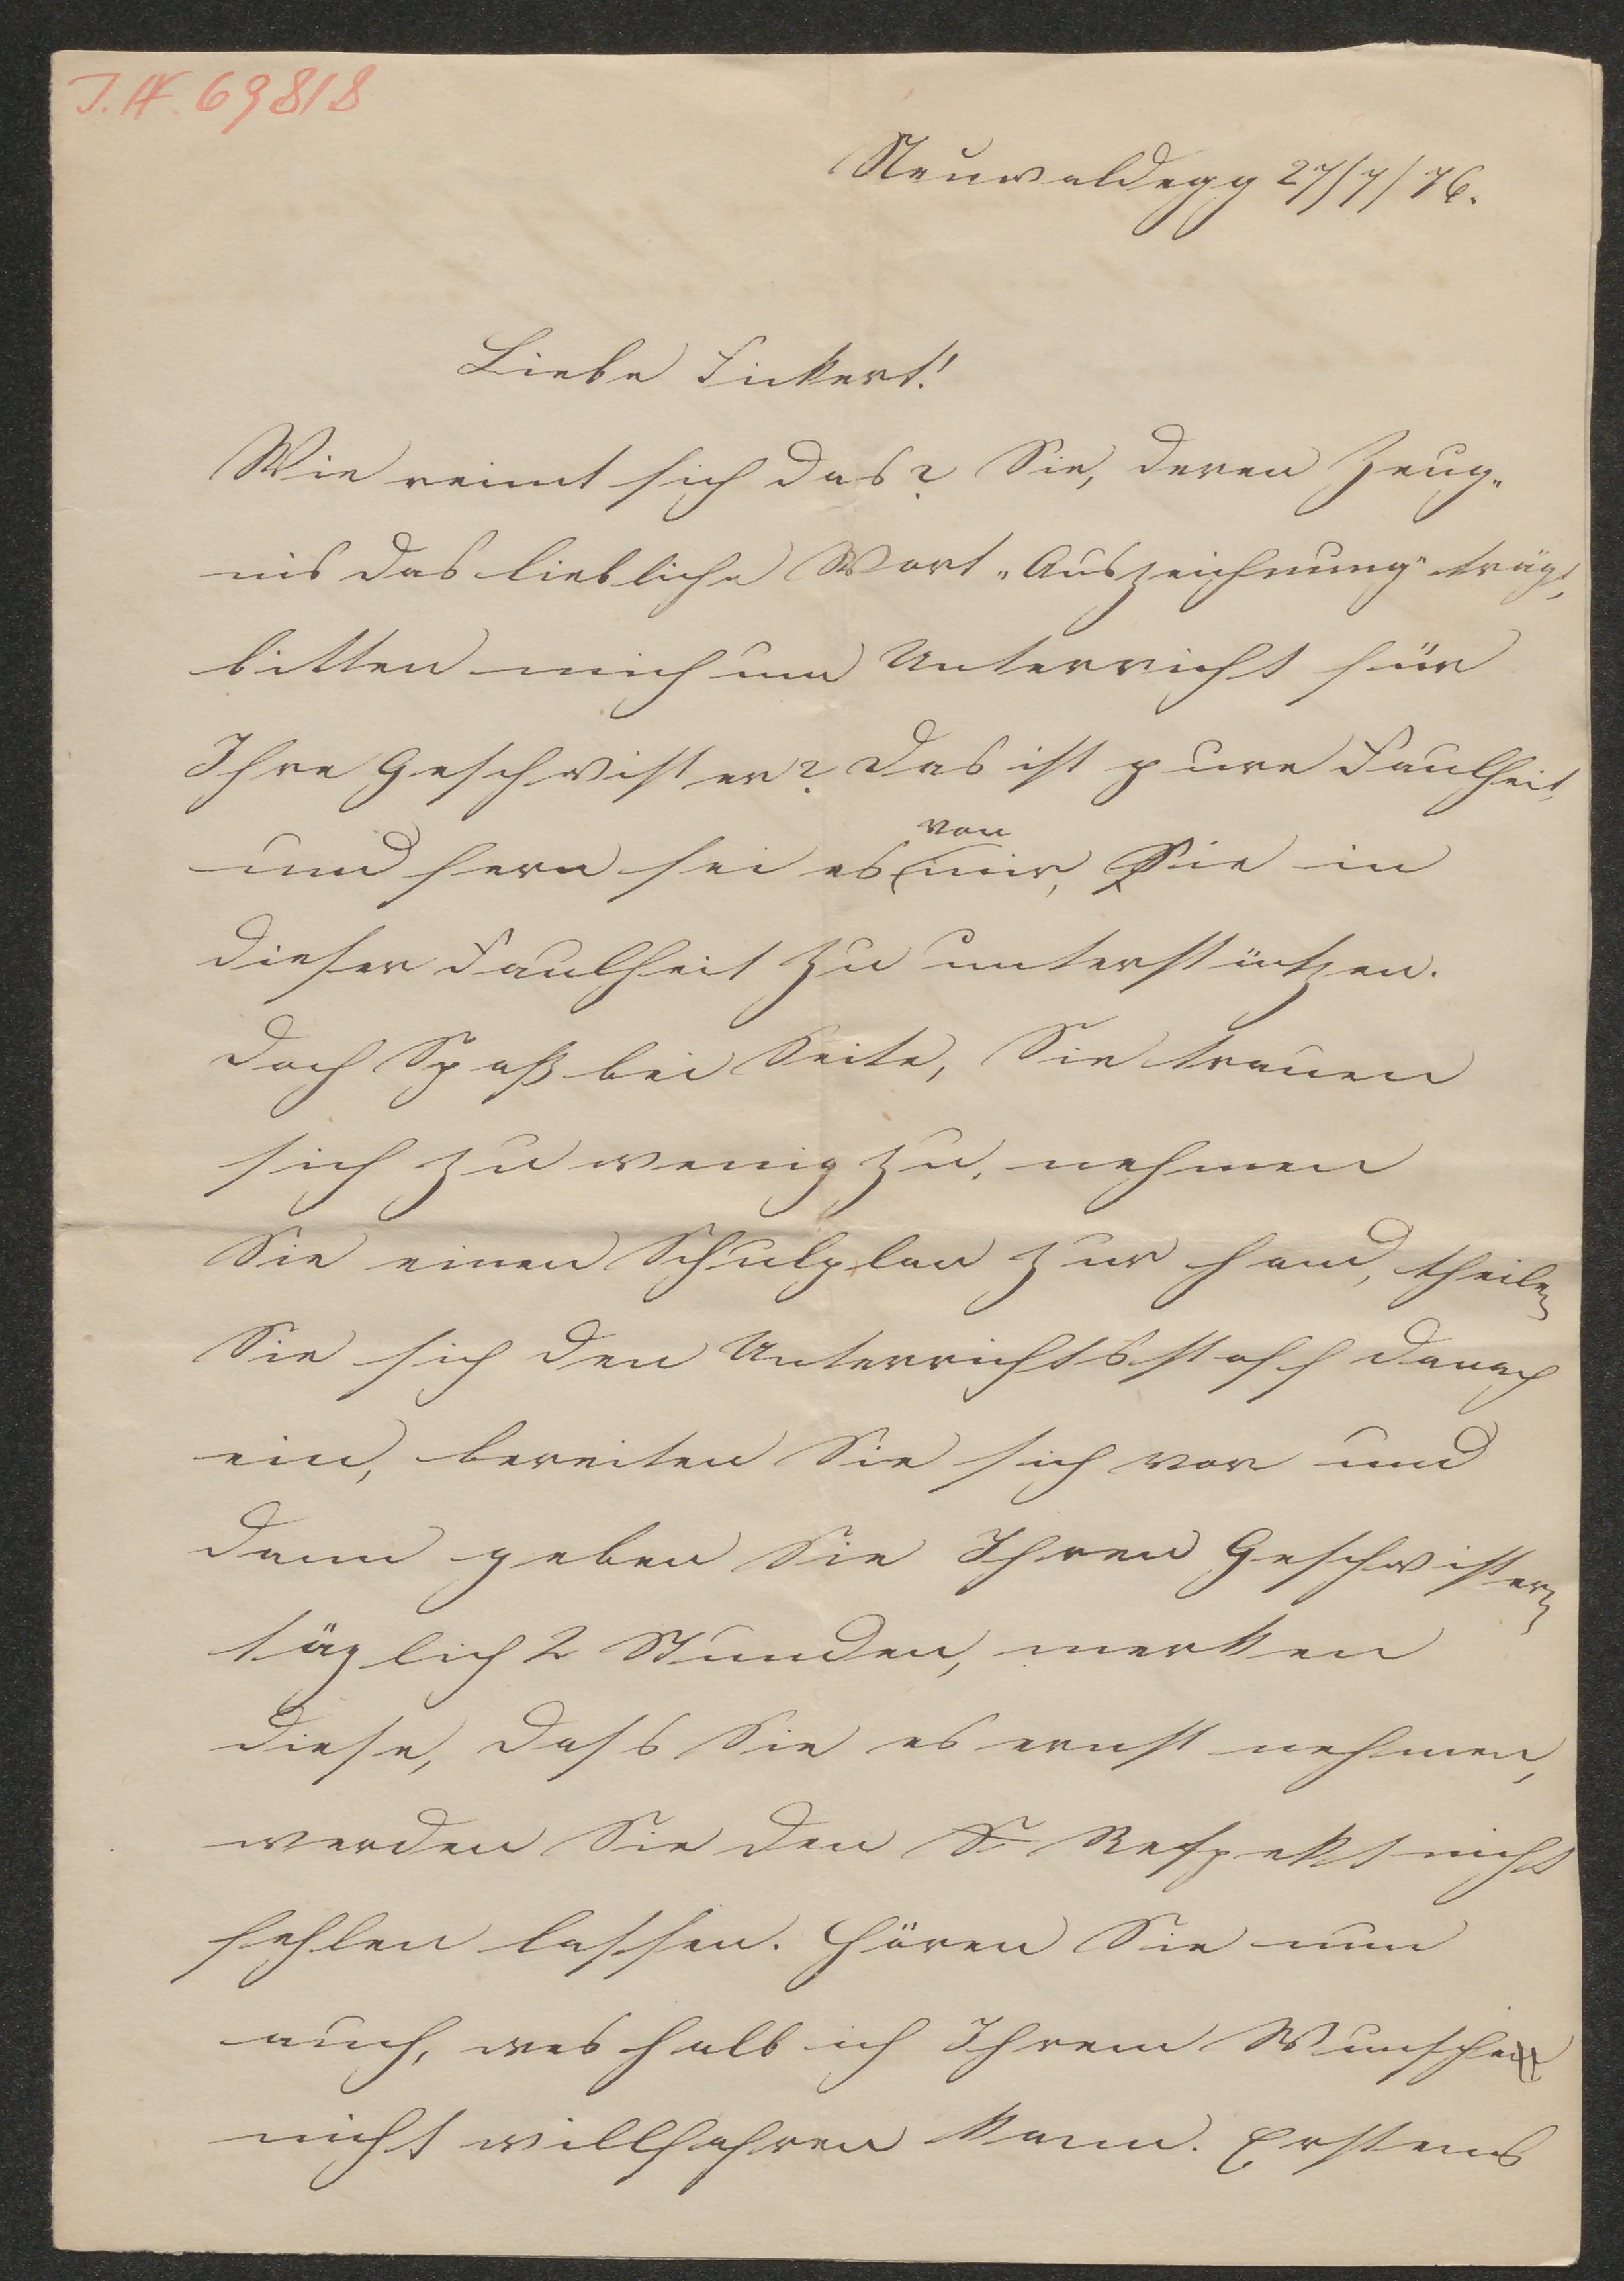 J. N. 69818
Neuwaldegg 27/7/76.
Liebe Fickert!
Wie reimt sich das? Sie, deren Zeug-
nis das liebliche Wort „Auszeichnung" trägt,
bitten mich um Unterricht für
Ihre Geschwister? Das ist pure Faulheit,
von
und fern sei es mir, Sie in
dieser Faulheit zu unterstützen.
Doch Spaß bei Seite, Sie trauen
sich zu wenig zu, nehmen
Sie einen Schulplan zur Hand, theilen
Sie sich den Unterrichtsstoff danach
ein, bereiten Sie sich vor und
dann geben Sie Ihren Geschwistern
täglich 2 Stunden, merken
diese, dass Sie es ernst nehmen,
werden Sie den Respekt nicht
fehlen lassen. Hören Sie nun
auch, weshalb ich Ihrem Wunsche
nicht willfahren kann. Erstens